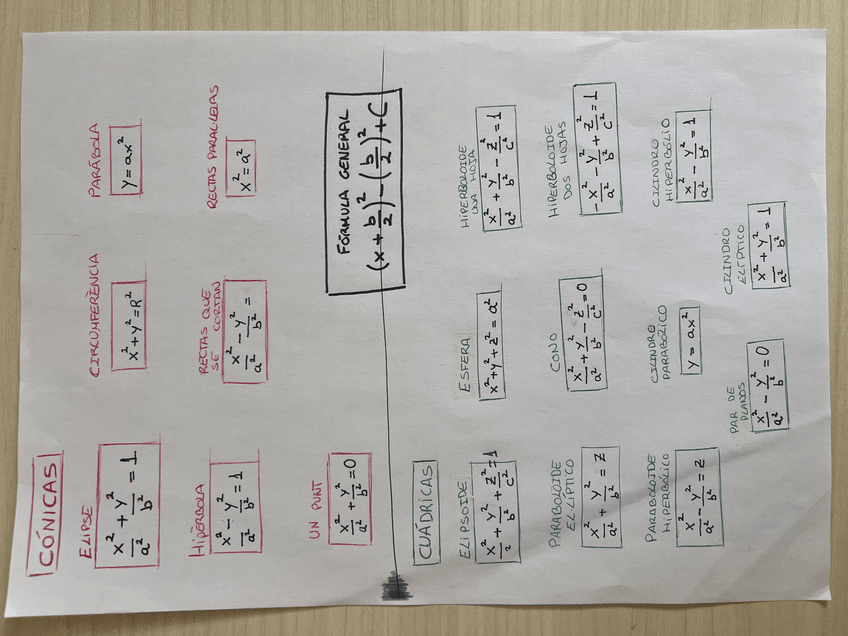 CÓNICAS
ELIPSE
x²/a² + y²/b² = 1
CIRCUMFERÈNCIA
x² + y² = R²
PARÁBOLA
y = ax²
HIPÈRBOLA
x²/a² - y²/b² = 1
RECTAS QUE
SE CORTAN
x²/a² - y²/b² =
RECTAS PARAL·LELAS
x² = a²
UN PUNT
x²/a² + y²/b² = 0
FÓRMULA GENERAL
(x + b/2)² - (b/2)² + C
CUÁDRICAS
ELIPSOIDE
x²/2 + y²/b² + z²/c² = 1
ESFERA
x² + y² + z² = a²
HIPERBOLOIDE
UNA HOJA
x²/a² + y²/b² - z²/c² = 1
PARABOLOIDE
EL·LÍPTICO
x²/a² + y²/b² = z
CONO
x²/a² + y²/b² - z²/c² = 0
HIPERBOLOIDE
DOS HOJAS
-x²/a² - y²/b² + z²/c² = 1
PARABOLOIDE
HIPERBÓLICO
x²/a² - y²/b² = z
CILINDRO
PARABÓLICO
y = ax²
CILINDRO
HIPERBÓLIO
x²/a² - y²/b² = 1
PAR DE
PLANOS
x²/a² - y²/b² = 0
CILINDRO
ELÍPTICO
x²/a² + y²/b² = 1